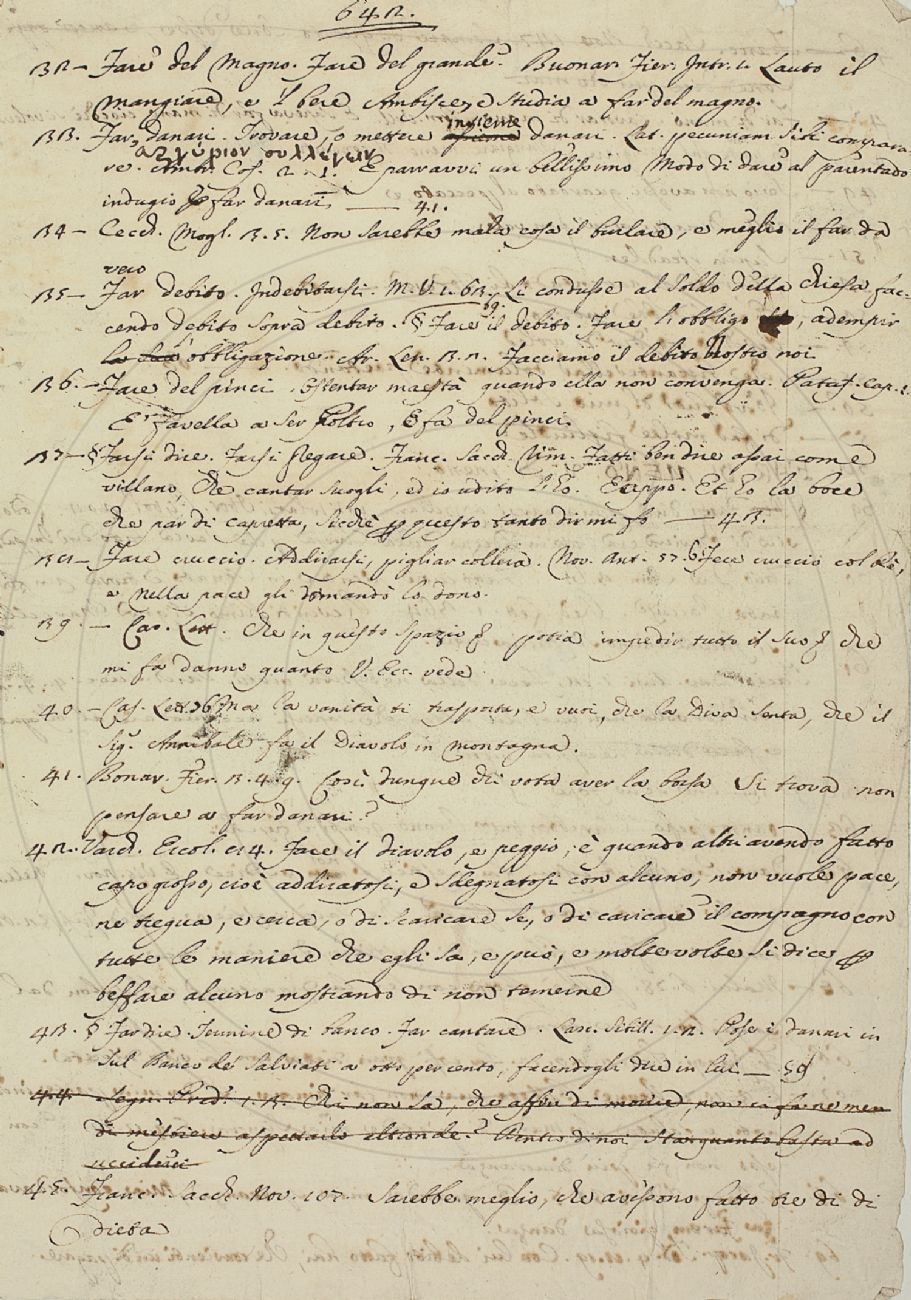 642.
32 – Fare del Magno. Fare del grande. Buonar. Fier. Intr. 2. Lauto il
mangiare, e 'l bere Ambisce, e studia a far del magno.
33. Far danari. Trovare, o mettere insieme danari. Lat. pecuniam sibi compara-
αργύριον συλλέγειν
re. Ambr. Cof. 2. 1. E parravvi un bellissimo modo di dare al parentado
indugio p far danari. — 41.
34 – Cecch. Mogl. 3. 5. Non sarebbe mala cosa il burlare, e meglio il far da
vero
35 – Far debito. Indebitarsi. M. V. 1. 63. Li condusse al soldo della Chiesa fac-
cendo debito sopra debito. § Fare il debito. Fare l'obbligo, adempir
la sua obbligazione. Ar. Len. 3. 2. Facciamo il debito nostro noi
36. – Fare del pinci. Ostentar maestà quando ella non convenga. Pataf. Cap. 2.
E favella a ser Poltro, E fa del pinci.
37 – § Farsi dire. Farsi pregare. Franc. Sacch. Rim. Fatti ben dire assai come
villano, Che cantar vuogli, ed io udito l'ho. Et ho la boce
che par di capretta, sicchè p questo tanto dir mi fo — 43.
38 – Fare cruccio. Addirarsi, pigliar collera. Nov. Ant. 57. 6. Fece cruccio col Rè,
e nella pace gli domandò lo dono.
39. – Car. Lett. Che in questo spazio potea impedir tutto il suo che
mi fa danno quanto V. Ecc. vede
40. – Cas. Lett. 76 Ma la vanità ti trasporta, e vuoi, che la Diva senta, che il
Sig. Annibale fa il Diavolo in montagna.
41. Bonar. Fier. 3. 4. 9. Così dunque chi vota aver la borsa Si trova non
pensare a far danari?
42. Varch. Ercol. 84. Fare il diavolo, e peggio, è quando altri avendo fatto
capo grosso, cioè addiratosi, e sdegnatosi con alcuno, non vuole pace,
ne tregua, e cerca, o di scaricare se, o di caricare il compagno con
tutte le maniere che egli sa, e può, e molte volte si dice p
beffare alcuno mostrando di non temerne
43. § Far dire. Termine di banco. Far cantare. Lasc. Sibill. 1. 2. Pose i danari in
sul Banco de' Salviati a otto per cento, facendogli dire in lui. — 58
44. Segn. Pred. 1. 3. Chi non sa, che affin di morire, non ci fa ne men
di mestiere aspettarlo altronde? Dentro di noi sta quanto basta ad
ucciderci
45. Franc. Sacch. Nov. 107. Sarebbe meglio, che avissono fatto tre dì di
dieta